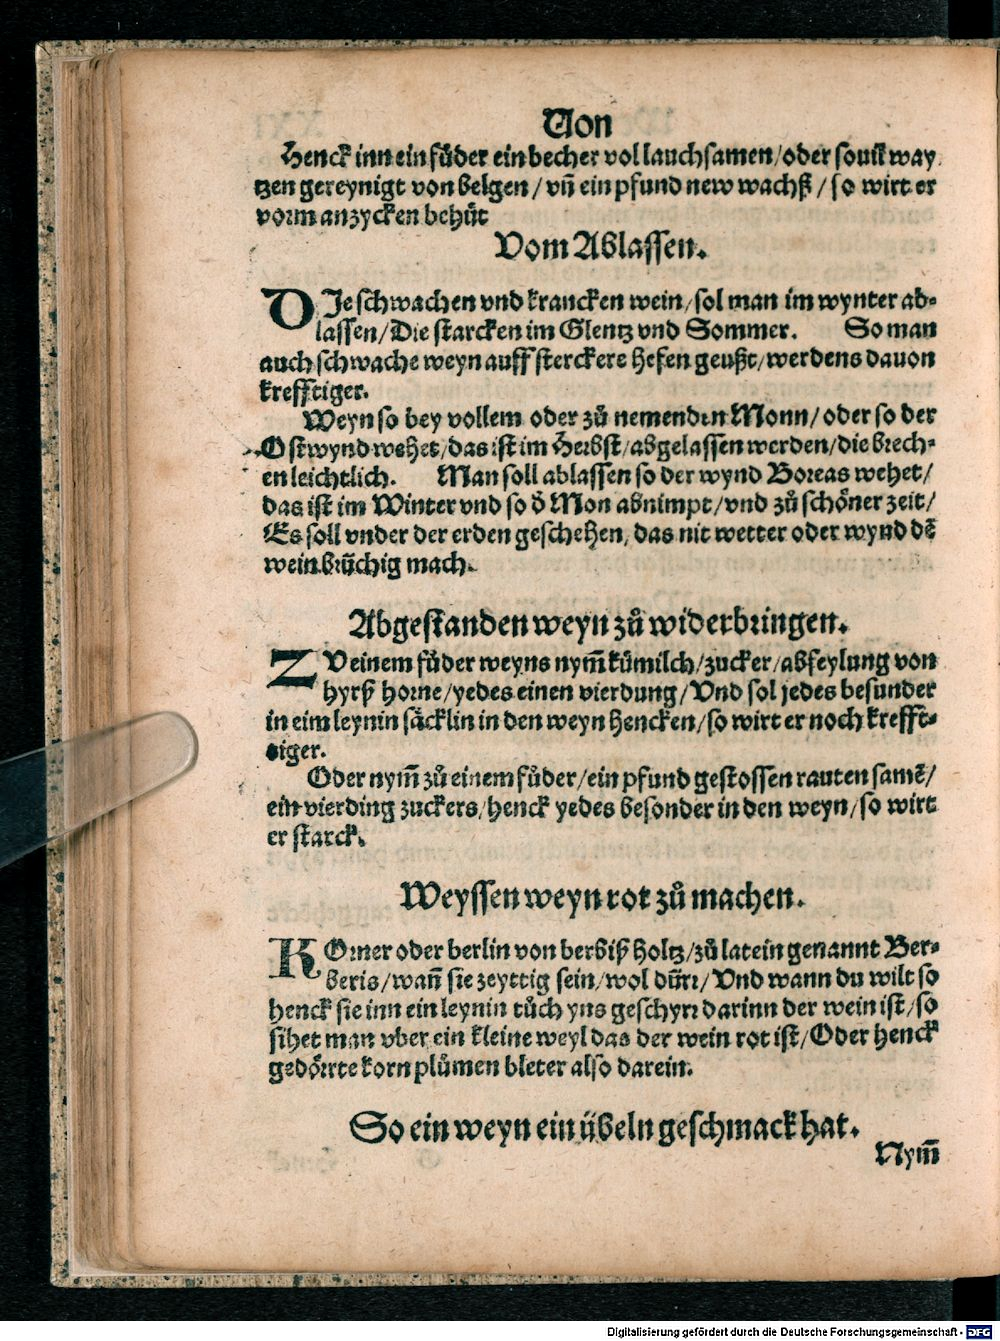 Von
Henck inn ein fůder ein becher vol lauchsamen/oder souil way
tzen gereynigt von belgen/vñ ein pfund new wachß/so wirt er
vorm anzycken behůt
Vom Ablassen.
DJe schwachen vnd krancken wein/sol man im wynter ab-
lassen/Die starcken im Glentz vnd Sommer. So man
auch schwache weyn auff sterckere hefen geußt/werdens dauon
krefftiger.
Weyn so bey vollem oder zů nemenden Monn/oder so der
Ostwynd wehet/das ist im Herbst/abgelassen werden/die brech-
en leichtlich. Man soll ablassen so der wynd Boreas wehet/
das ist im Winter vnd so ð Mon abnimpt/vnd zů schöner zeit/
Es soll vnder der erden geschehen, das nit wetter oder wynd dē
wein brüchig mach.
Abgestanden weyn zů widerbringen.
ZV einem fůder weyns nym̄ kümilch/zucker/abfeylung von
hyrß horne/yedes einen vierdung/Vnd sol jedes besunder
in eim leynin säcklin in den weyn hencken/so wirt er noch krefft-
tiger.
Oder nym̄ zů einem fůder/ein pfund gestossen rauten samē/
ein vierding zuckers/henck yedes besonder in den weyn/so wirt
er starck.
Weyssen weyn rot zů machen.
KOrner oder berlin von berbiß holtz/zů latein genannt Ber-
beris/wañ sie zeyttig sein/wol dürr/Vnd wann du wilt so
henck sie inn ein leynin tůch yns geschyrr darinn der wein ist/so
sihet man vber ein kleine weyl das der wein rot ist/Oder henck
gedörrte korn plůmen bleter also darein.
So ein weyn ein übeln geschmack hat.
Nym̄
Digitalisierung gefördert durch die Deutsche Forschungsgemeinschaft - DFG